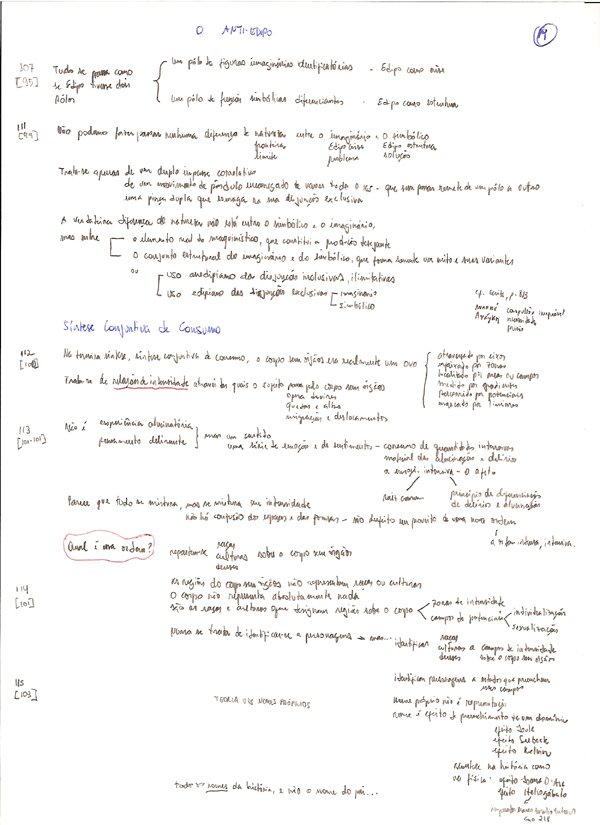 O ANTI-EDIPO
19
107
[95]
Tudo se passa como
se Édipo tivesse dois
Pólos
um pólo de figuras imaginárias identificatórias - Édipo como crise
um pólo de funções simbólicas diferenciantes - Édipo como estrutura
111
[99]
Não podemos fazer passar nenhuma diferença de natureza entre o imaginário e o simbólico
fronteira Édipo crise Édipo estrutura
limite problema solução
Trata-se apenas de um duplo impasse correlativo
de um movimento de pêndulo encarregado de varrer todo o ics - que sem parar remete de um pólo a outro
uma pinça dupla que esmaga na sua disjunção exclusiva
A verdadeira diferença de natureza não está entre o simbólico e o imaginário,
mas entre
o elemento real do maquinístico, que constitui a produção desejante
o conjunto estrutural do imaginário e do simbólico, que forma somente um mito e suas variantes
ou
uso anedipiano das disjunções inclusivas, ilimitativas
uso edipiano das disjunções exclusivas
imaginário
simbólico
Síntese Conjuntiva de Consumo
112
[100]
Na terceira síntese, síntese conjuntiva de consumo, o corpo sem órgãos era realmente um ovo
atravessado por eixos
por zonas
localizado por áreas ou campos
medido por gradientes
percorrido por potenciais
marcado por limiares
Trata-se de relações de intensidade através das quais o sujeito passa pelo corpo sem órgãos
opera devires
quedas e altas
migrações e deslocamentos
113
[100-101]
Não é
experiência alucinatória
pensamento delirante
mas um sentido
uma série de emoções e de sentimentos - consumo de quantidades intensivas
material das alucinações e delírios
a emoção intensiva - o afeto
raiz comum
princípio de diferenciação
de delírios e alucinações
Parece que tudo se mistura, mas se mistura em intensidade
não há confusão dos espaços e das formas - são desfeitos em proveito de uma nova ordem
a ordem intensa, intensiva.
Qual é essa ordem?
repartem-se
raças
culturas sobre o corpo sem órgãos
deuses
114
[101]
As regiões do corpo sem órgãos não representam raças ou culturas
O corpo não representa absolutamente nada
são as raças e culturas que designam regiões sobre o corpo
zonas de intensidade
campos de potenciais
individualização
sexualização
Nunca se trata de identificar-se a personagens
identificar
raças
culturas a campos de intensidade
deuses sobre o corpo sem órgãos
115
[103]
identificar personagens a estados que preenchem
esses campos
TEORIA DOS NOMES PRÓPRIOS
nome próprio não é representação
nome é efeito de preenchimento de um domínio
efeito Joule
efeito Seebeck
efeito Kelvin
na história como
na física: efeito Joana D'Arc
efeito Heliogábalo
todos os nomes da história, e não o nome do pai...